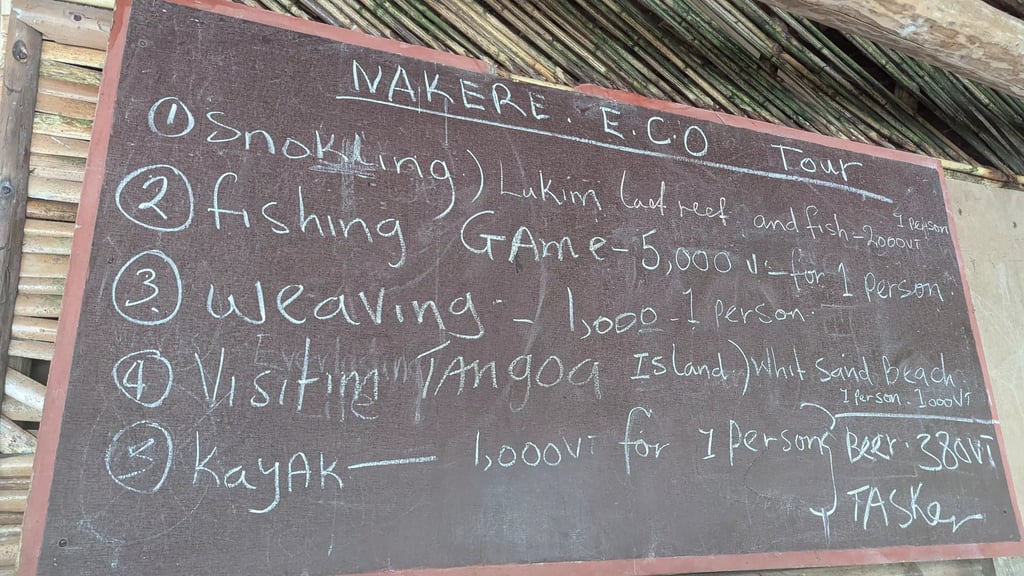 NAKERE. E.C.O Tour
① Snokling.) Lukim laef reef and fish - 2,000VT 1 person
② fishing GAme - 5,000 v - for 1 person.
③ weaving - 1,000 - 1 person.
④ Visitim TAngoa Island.) Whit sand beach
1 person. 1000VT
⑤ KayAK — 1,000VT for 1 person
Beer. 380VT
TASKer